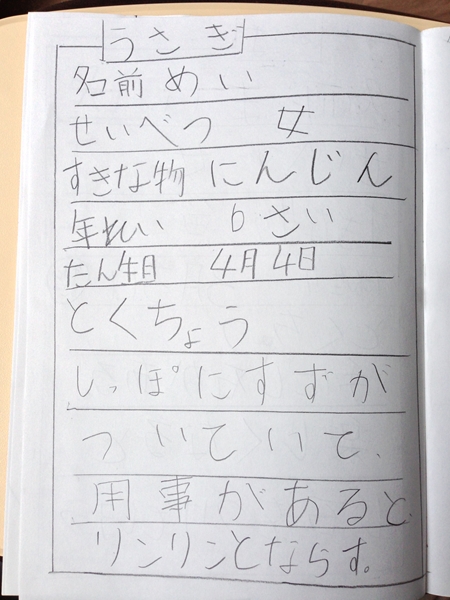 うさぎ
名前 めい
せいべつ 女
すきな物 にんじん
年れい 6さい
たん生日 4月4日
とくちょう
しっぽにすずが
ついていて、
用事があると
リンリンとならす。